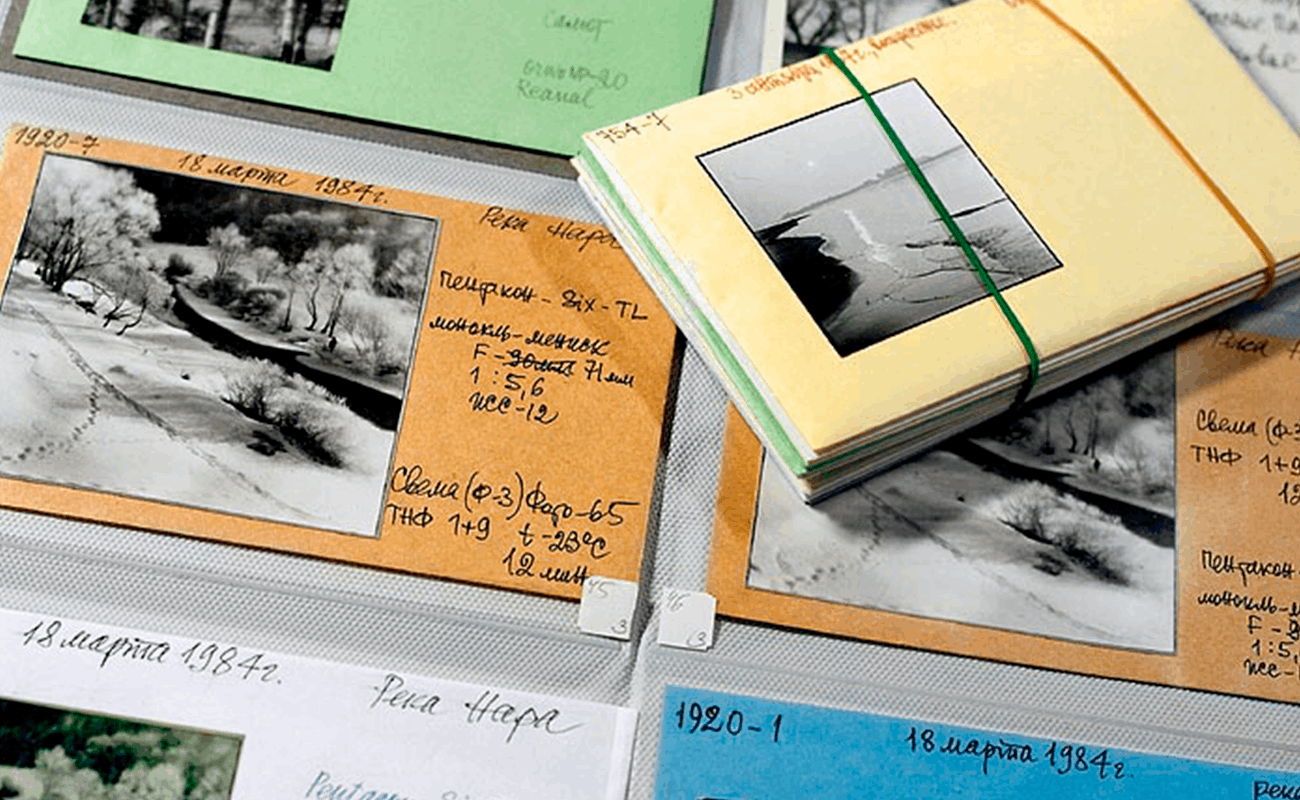 Салют
Reanal
3 сентября
754-7
1920-7
18 марта 1984г.
Река Нара
Пентакон - Six - TL
монокль-мениск
F - 90мм 71мм
1 : 5,6
жсс-12
Свема (Ф-3) Фото-65
ТНФ 1+9 t - 23°C
12 мин
45
3
Река
Свема (Ф-3
ТНФ 1+9
12
46
3
Пентакон-
монокль-м
F - 9
1 : 5,
жсс-1
18 марта 1984г.
Река Нара
Pentacon Six
1920-1
18 марта 1984г.
река